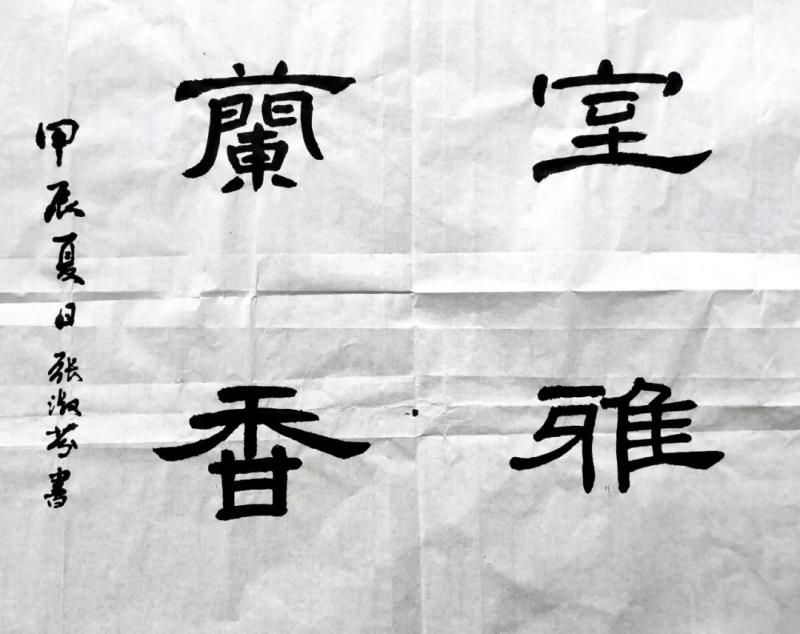 室雅
蘭香
甲辰夏日張淑芬書